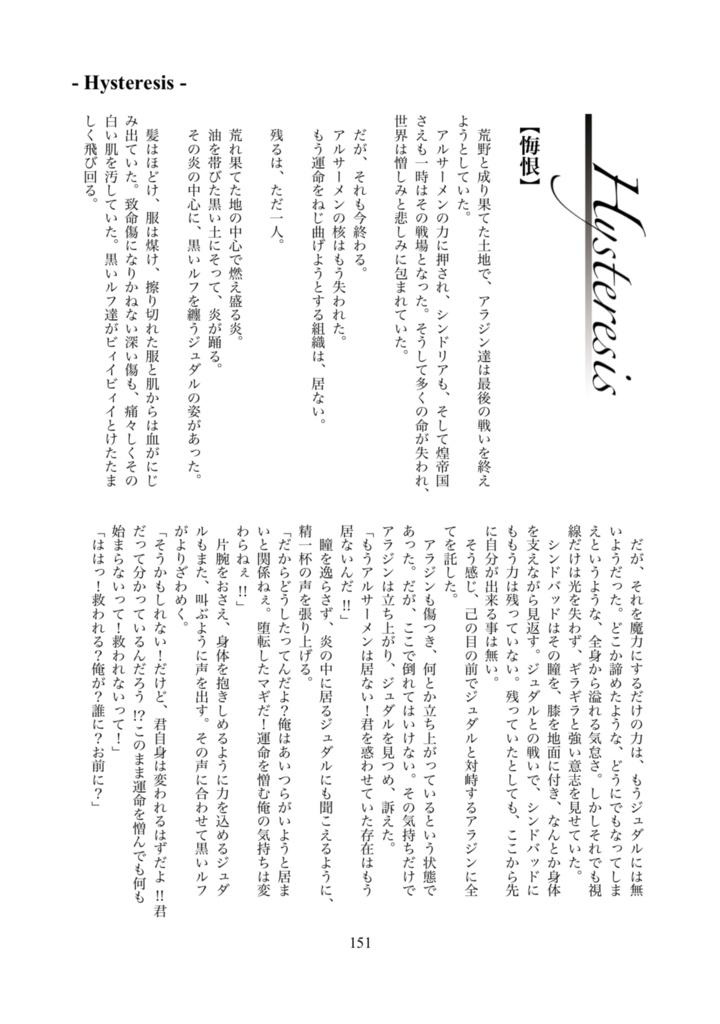 - Hysteresis -
Hysteresis
【悔恨】
荒野と成り果てた土地で、アラジン達は最後の戦いを終え
ようとしていた。
アルサーメンの力に押され、シンドリアも、そして煌帝国
さえも一時はその戦場となった。そうして多くの命が失われ、
世界は憎しみと悲しみに包まれていた。
だが、それも今終わる。
アルサーメンの核はもう失われた。
もう運命をねじ曲げようとする組織は、居ない。
残るは、ただ一人。
荒れ果てた地の中心で燃え盛る炎。
油を帯びた黒い土にそって、炎が踊る。
その炎の中心に、黒いルフを纏うジュダルの姿があった。
髪はほどけ、服は煤け、擦り切れた服と肌からは血がにじ
み出ていた。致命傷になりかねない深い傷も、痛々しくその
白い肌を汚していた。黒いルフ達がビィイビィイとけたたま
しく飛び回る。
だが、それを魔力にするだけの力は、もうジュダルには無
いようだった。どこか諦めたような、どうにでもなってしま
えというような、全身から溢れる気怠さ。しかしそれでも視
線だけは光を失わず、ギラギラと強い意志を見せていた。
シンドバッドはその瞳を、膝を地面に付き、なんとか身体
を支えながら見返す。ジュダルとの戦いで、シンドバッドに
ももう力は残っていない。残っていたとしても、ここから先
に自分が出来る事は無い。
そう感じ、己の目の前でジュダルと対峙するアラジンに全
てを託した。
アラジンも傷つき、何とか立ち上がっているという状態で
あった。だが、ここで倒れてはいけない。その気持ちだけで
アラジンは立ち上がり、ジュダルを見つめ、訴えた。
「もうアルサーメンは居ない！君を惑わせていた存在はもう
居ないんだ!!」
瞳を逸らさず、炎の中に居るジュダルにも聞こえるように、
精一杯の声を張り上げる。
「だからどうしたってんだよ？俺はあいつらがいようと居ま
いと関係ねぇ。堕転したマギだ！運命を憎む俺の気持ちは変
わらねぇ!!」
片腕をおさえ、身体を抱きしめるように力を込めるジュダ
ルもまた、叫ぶように声を出す。その声に合わせて黒いルフ
がよりざわめく。
「そうかもしれない！だけど、君自身は変われるはずだよ!!君
だって分かっているんだろう!?このまま運命を憎んでも何も
始まらないって！救われないって！」
「ははっ！救われる？俺が？誰に？お前に？」
151